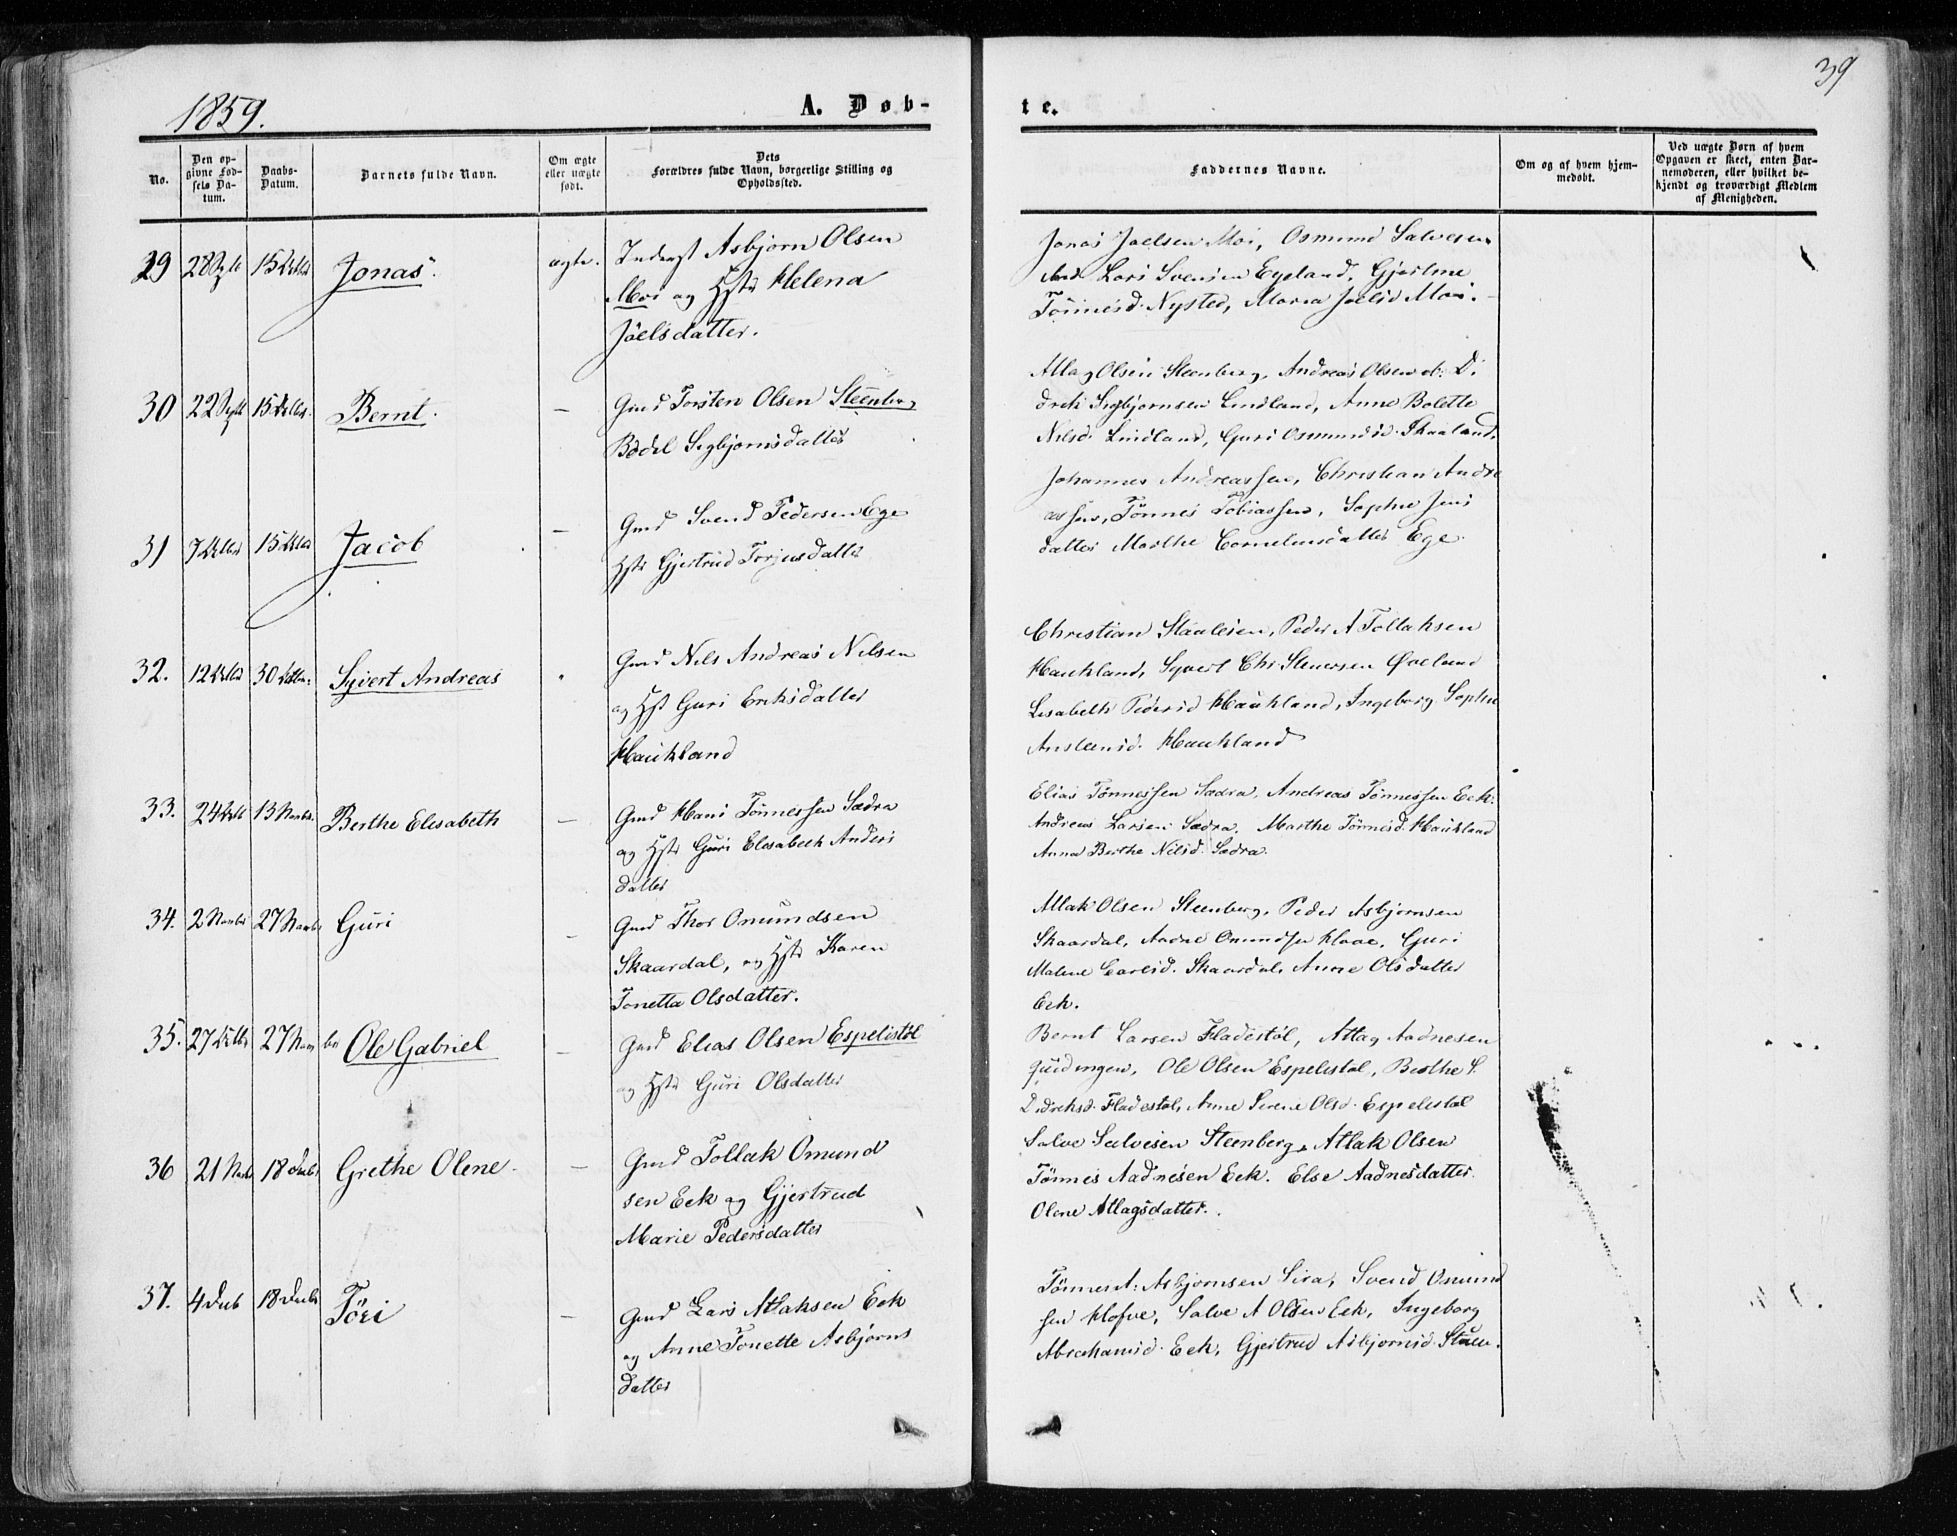 39
1859.
A. Døb-
te.
No.
Den op-
givne Fød-
sels Da-
tum.
Daabs-
Datum.
Barnets fulde Navn.
Om ægte
eller uægte
født.
Dets
Forældres fulde Navn, borgerlige Stilling og
Opholdssted.
Faddernes Navne.
Om og af hvem hjem-
medøbt.
Ved uægte Børn af hvem
Opgaven er skeet, enten Bar-
nemoderen, eller hvilket be-
kjendt og troværdigt Medlem
af Menigheden.
29 28 15 Jonas. ægte.
Asbjørn Olsen
Moi og Hstr Helena
Joelsdatter.
Jonas Joelsen Moi, Osmund Salvesen
Lars Svensen Egeland, Gjertine
Tönnesd. Nysted, Maria Joelsd Moi.
30 22 15 Bernt. —
Gmd Torsten Olsen Steenberg
Bodel Segbjørnsdatter
Atlag Olsen Steenberg, Andreas Olsen
Segbjørnsen Lindland, Anne Bolette
Nilsd. Lindland, Guri Osmundsd. Skaaland.
31 7 15 Jacob —
Gmd Svend Pedersen Ege
Hstr Gjertrud Torjusdatter
Johannes Andreassen, Christian Andre
assen, Tönnes Tobiassen, Sophie Jens
datter Marthe Corneliusdatter Ege.
32. 12 30 Syvert Andreas
Gmd Nils Andreas Nilsen
og Hst Guri Eriksdatter
Haukland
Christian Staalesen, Peder A Tollaksen
Haukland, Syvert Chr Steensen Øveland
Lisabeth Pedersd Haukland, Ingeborg Sophie
Ansteensd. Haukland
33. 24 13 Novbr. Berthe Elisabeth —
Gmd Hans Tönnessen Sædra
og Hstr Guri Elisabeth Anders
datter
Elias Tönnessen Sædra, Andreas Tönnessen Eek.
Andreas Larsen Sædra. Marthe Tönnesd. Haukland
Anna Berthe Nilsd. Sædra.
34. 2 Novbr 27 Novbr Guri —
Gmd Thor Omundsen
Skaardal, og Hstr Karen
Tonetta Olsdatter.
Atlak Olsen Steenberg, Peder Asbjørnsen
Skaardal, Aadne Omundsen, Guri
Malene Carlsd. Skaardal, Anne Olsdatter
Eek.
35. 27 27 Nov br Ole Gabriel —
Gmd Elias Olsen Espelistøl
og Hstr Guri Olsdatter
Bernt Larsen Fladestøl, Atlag Aadnesen
Ole Olsen Espelistøl, Berthe S.
Didreksd. Fladestøl, Anne Serene Olsd. Espelistøl
36 21 Novbr 18 Decbr Grethe Olene. —
Gmd Tollak Omund
sen Eek og Gjertrud
Marie Pedersdatter
Salve Salvesen Steenberg, Atlak Olsen
Tönnes Aadnesen Eek. Else Aadnesdatter.
Olene Atlagsdatter.
37. 4 Decb 18 Decbr Töri —
Gmd Lars Atlaksen Eek
og Anne Tonette Asbjørns
datter
Tönnes A. Asbjørnsen Sira, Svend Omund
sen, Salve A Olsen Eek, Ingeborg
Abrahamsd. Eek, Gjertrud Asbjørnsd.